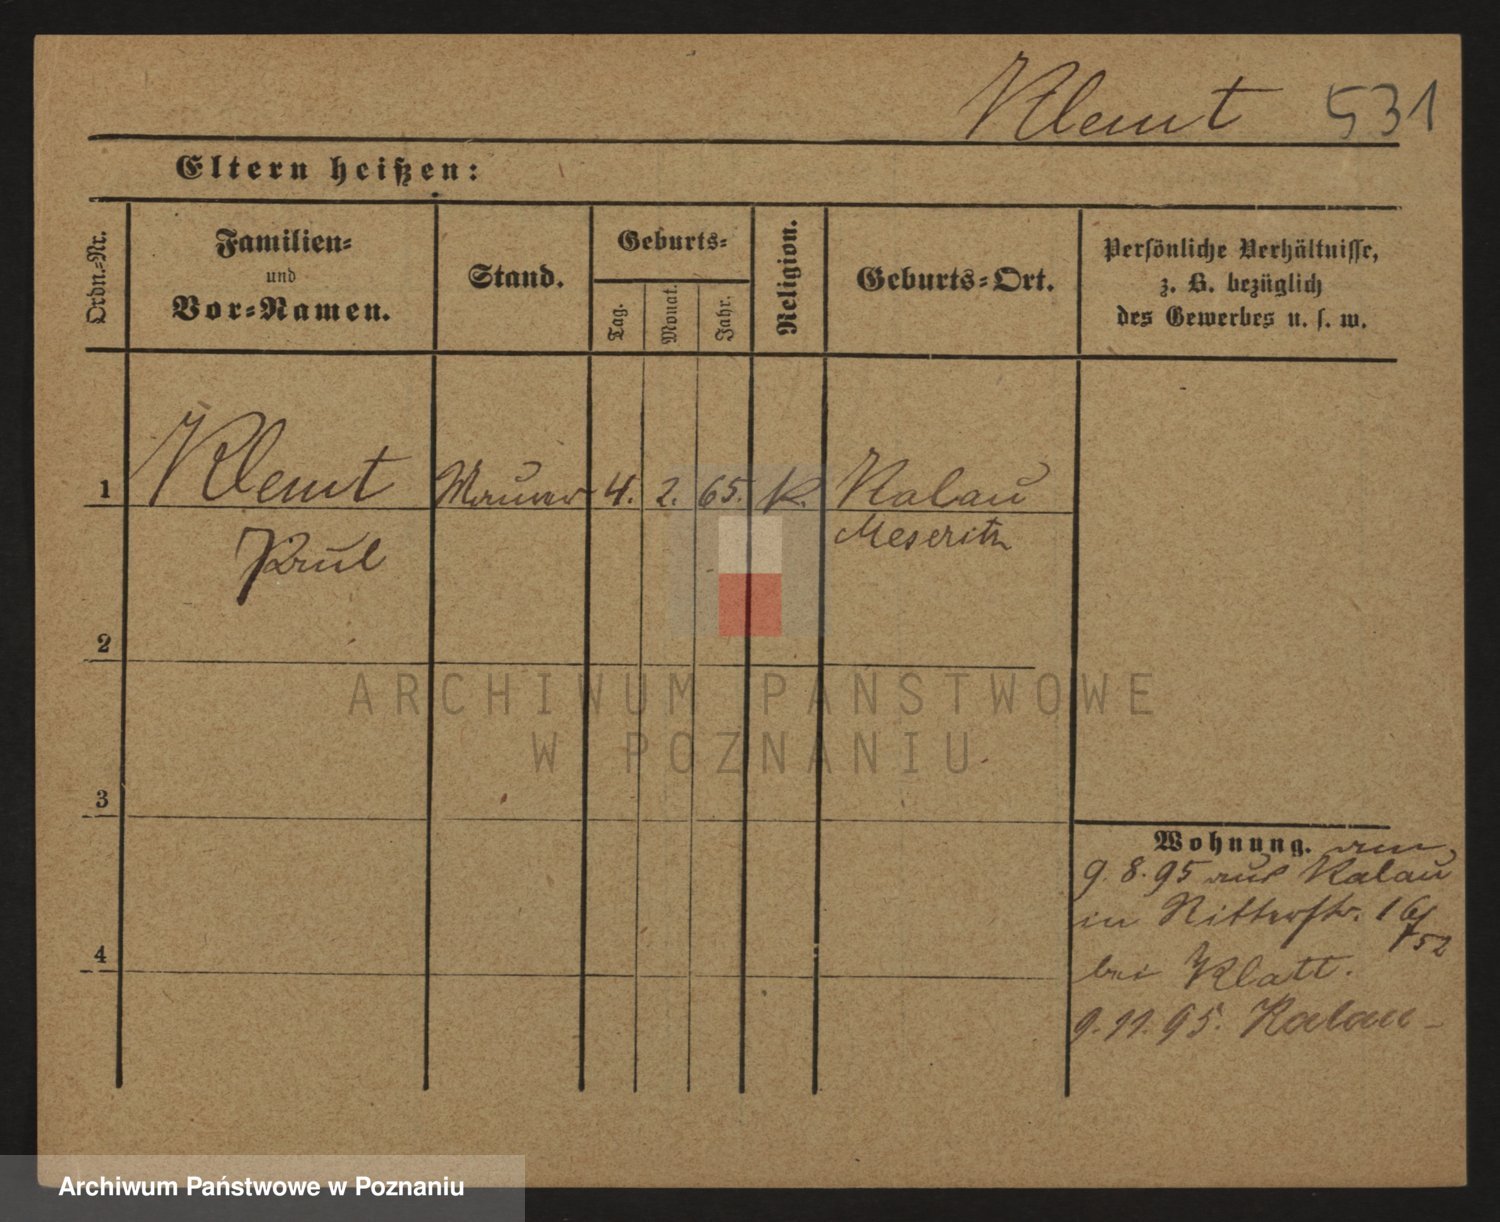 Klemt 531
Eltern heißen:
Ordn.-Nr.
Familien-
und
Vor-Namen.
Stand.
Geburts-
Tag.
Monat.
Jahr.
Religion.
Geburts-Ort.
Persönliche Verhältnisse,
z. B. bezüglich
des Gewerbes u. s. w.
1 Klemt Maurer 4. 2. 65. K. Kalau
Paul Meseritz
2
3
4
Wohnung. am
9. 8. 95 aus Kalau
in Ritterstr. 16
52
bei Klatt.
9. 11. 95. Kalau
ARCHIWUM PAŃSTWOWE
W POZNANIU
Archiwum Państwowe w Poznaniu